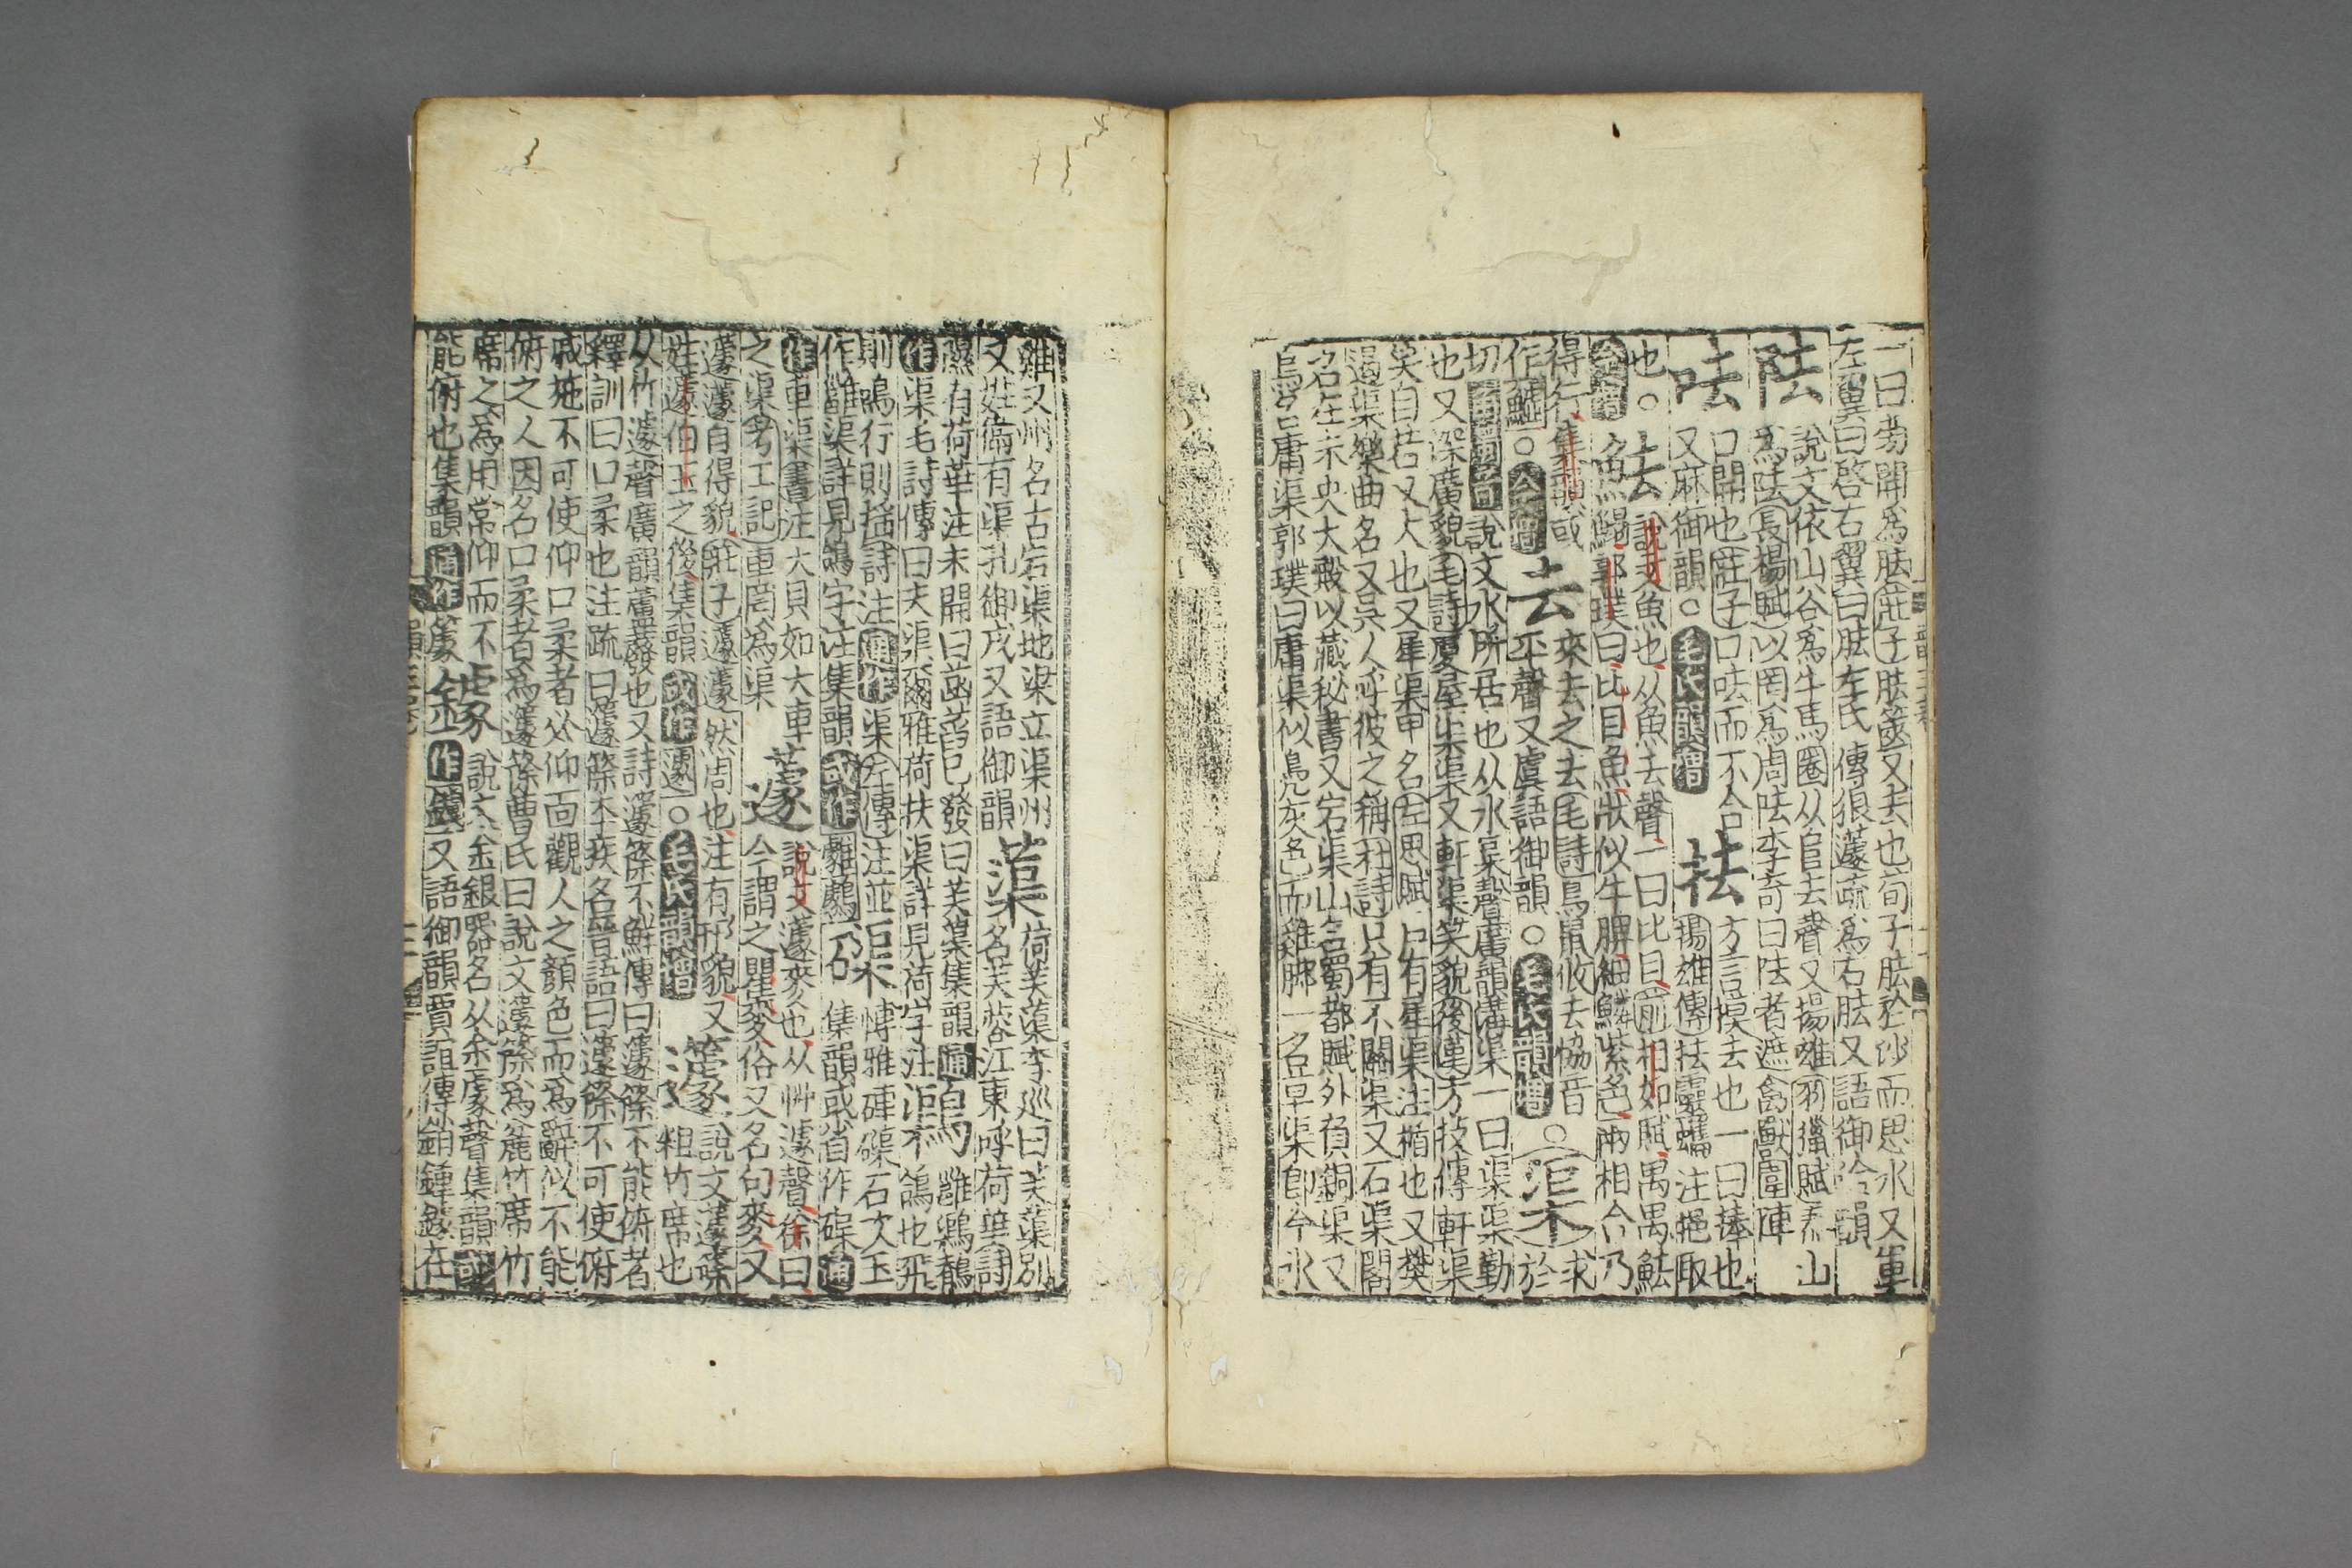 一曰旁開爲胠莊子胠篋又去也荀子胠於沙而思水又軍
左翼曰啓右翼曰胠左氏傳狼蘧疏爲右胠又語御洽韻
阹 說文依山谷爲牛馬圈从𨸏去聲又揚雄羽獵賦 山
爲阹長楊賦以罔爲周阹李奇曰阹者遮禽獸圍陣
呿 口開也莊子口呿而不合 祛 方言摸去也一曰捧也
又麻御韻○毛氏韻增 揚雄傳抾靈蠵注挹取
也○魼 說文魚也从魚去聲一曰比目前相如賦禺禺魼
今增 魚鰨郭璞曰比目魚狀似牛脾細鱗紫色兩相合乃
得行集韻或 去 來去之去毛詩鳥鼠攸去協音 渠 求
作鱋○今增 平聲又虞語御韻○毛氏韻增○ 於
切角濁音說文水所居也从水榘聲廣韻溝渠一曰渠渠勤
也又深廣貌毛詩夏屋渠渠又軒渠笑貌後漢方技傳軒渠
笑自若又大也又犀渠甲名左思賦戶有犀渠注楯也又樊
過渠樂曲名又吳人呼彼之稱杜詩只有不關渠又石渠閣
名在未央大殿以藏秘書又宕渠山名蜀都賦外負銅渠又
鳥名庸渠郭璞曰庸渠似鳧灰色而雞脚一名章渠即今水
雞又州名古宕渠地梁立渠州 蕖 荷芙蕖李巡曰芙蕖別
又姓衛有渠孔御戎又語御韻 名芙蓉江東呼荷華詩
隰有荷華注未開曰菡萏已發曰芙蕖集韻通 雝鶏鶺
作渠毛詩傳曰夫渠爾雅荷扶渠詳見荷字注 鴒也飛
則鳴行則搖詩注通作渠左傳注並 磲 博雅硨磲石次玉
作雝渠詳見鴒字注集韻或作 集韻或省作磲通
作車渠書注大貝如大車 蘧 說文蘧麥也从艸遽聲徐曰
之渠考工記車罔爲渠 今謂之瞿麥俗又名句麥又
蘧蘧自得貌莊子蘧蘧然周也注有形貌又 籧 說文籧篨
姓蘧伯玉之後集韻或作遽○毛氏韻增 粗竹席也
从竹遽聲廣韻蘆䉬也又詩籧篨不鮮傳曰籧篨不能俯者
釋訓曰口柔也注疏曰籧篨本疾名晉語曰籧篨不可使俯
戚施不可使仰口柔者必仰面觀人之顏色而爲辭似不能
俯之人因名口柔者爲籧篨曹氏曰說文籧篨爲麄竹席竹
席之爲用常仰而不 鐻 說文金銀器名从金豦聲集韻或
能俯也集韻通作籧 作鐻又語御韻賈誼傳銷鍾鐻在